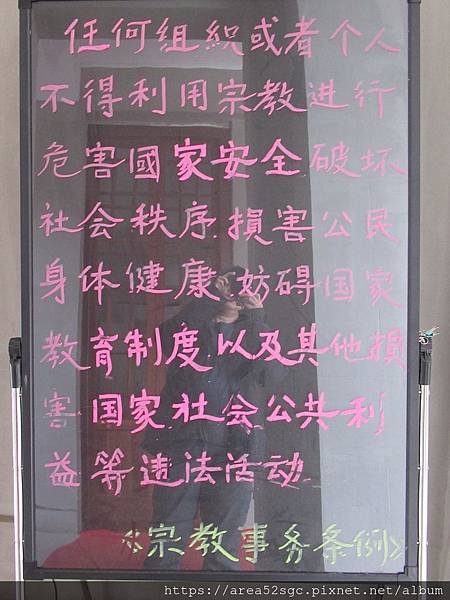 任何组织或者个人
不得利用宗教进行
危害國家安全.破坏
社会秩序.損害公民
身体健康.妨碍国家
教育制度.以及其他損
害国家社会公共利
益等违法活动.
《宗教事务条例》
https://area52sgc.pixnet.net/album